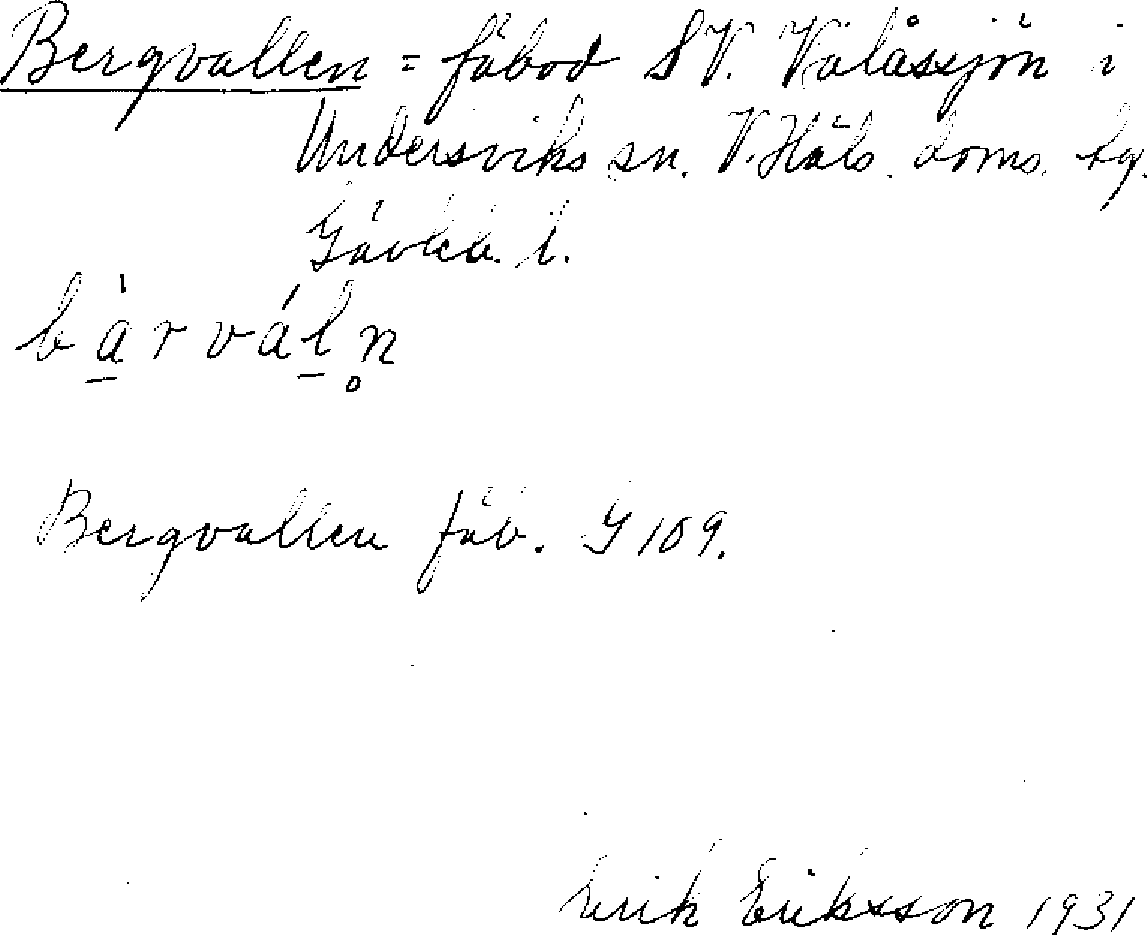 Bergvallen = fäbod SV. Välåssjön i
Undersviks sn. V. Häls. doms. tg.
Gävleb. l.
bàrváln̥
Bergvallen fäb. G 109.
Erik Eriksson 1931